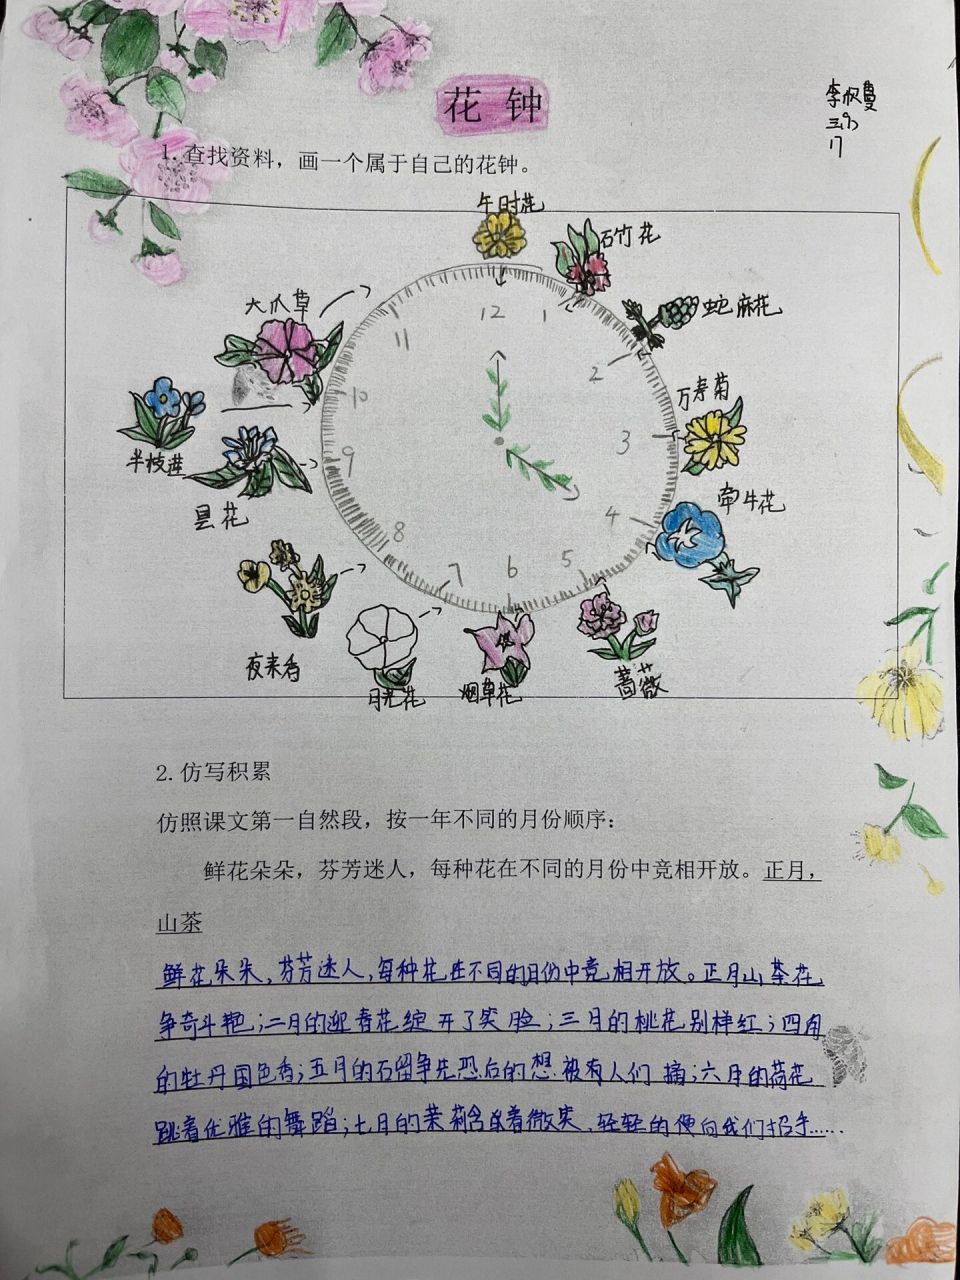 花 钟
李
三(9)
17
1.查找资料，画一个属于自己的花钟。
午时花
石竹花
大爪草
蛇麻花
12
1
11
2
10
万寿菊
3
半枝莲
9
昙花
牵牛花
4
8
5
7
6
夜来香
月光花
烟草花
蔷薇
2.仿写积累
仿照课文第一自然段，按一年不同的月份顺序：
鲜花朵朵，芬芳迷人，每种花在不同的月份中竞相开放。正月，
山茶
鲜花朵朵，芬芳迷人，每种花在不同的月份中竞相开放。正月山茶花
争奇斗艳；二月的迎春花绽开了笑脸；三月的桃花别样红；四月
的牡丹国色香；五月的石留争先恐后的想被有人们摘；六月的荷花
跳着优雅的舞蹈；七月的茉莉含着微笑，轻轻的便向我们招手……